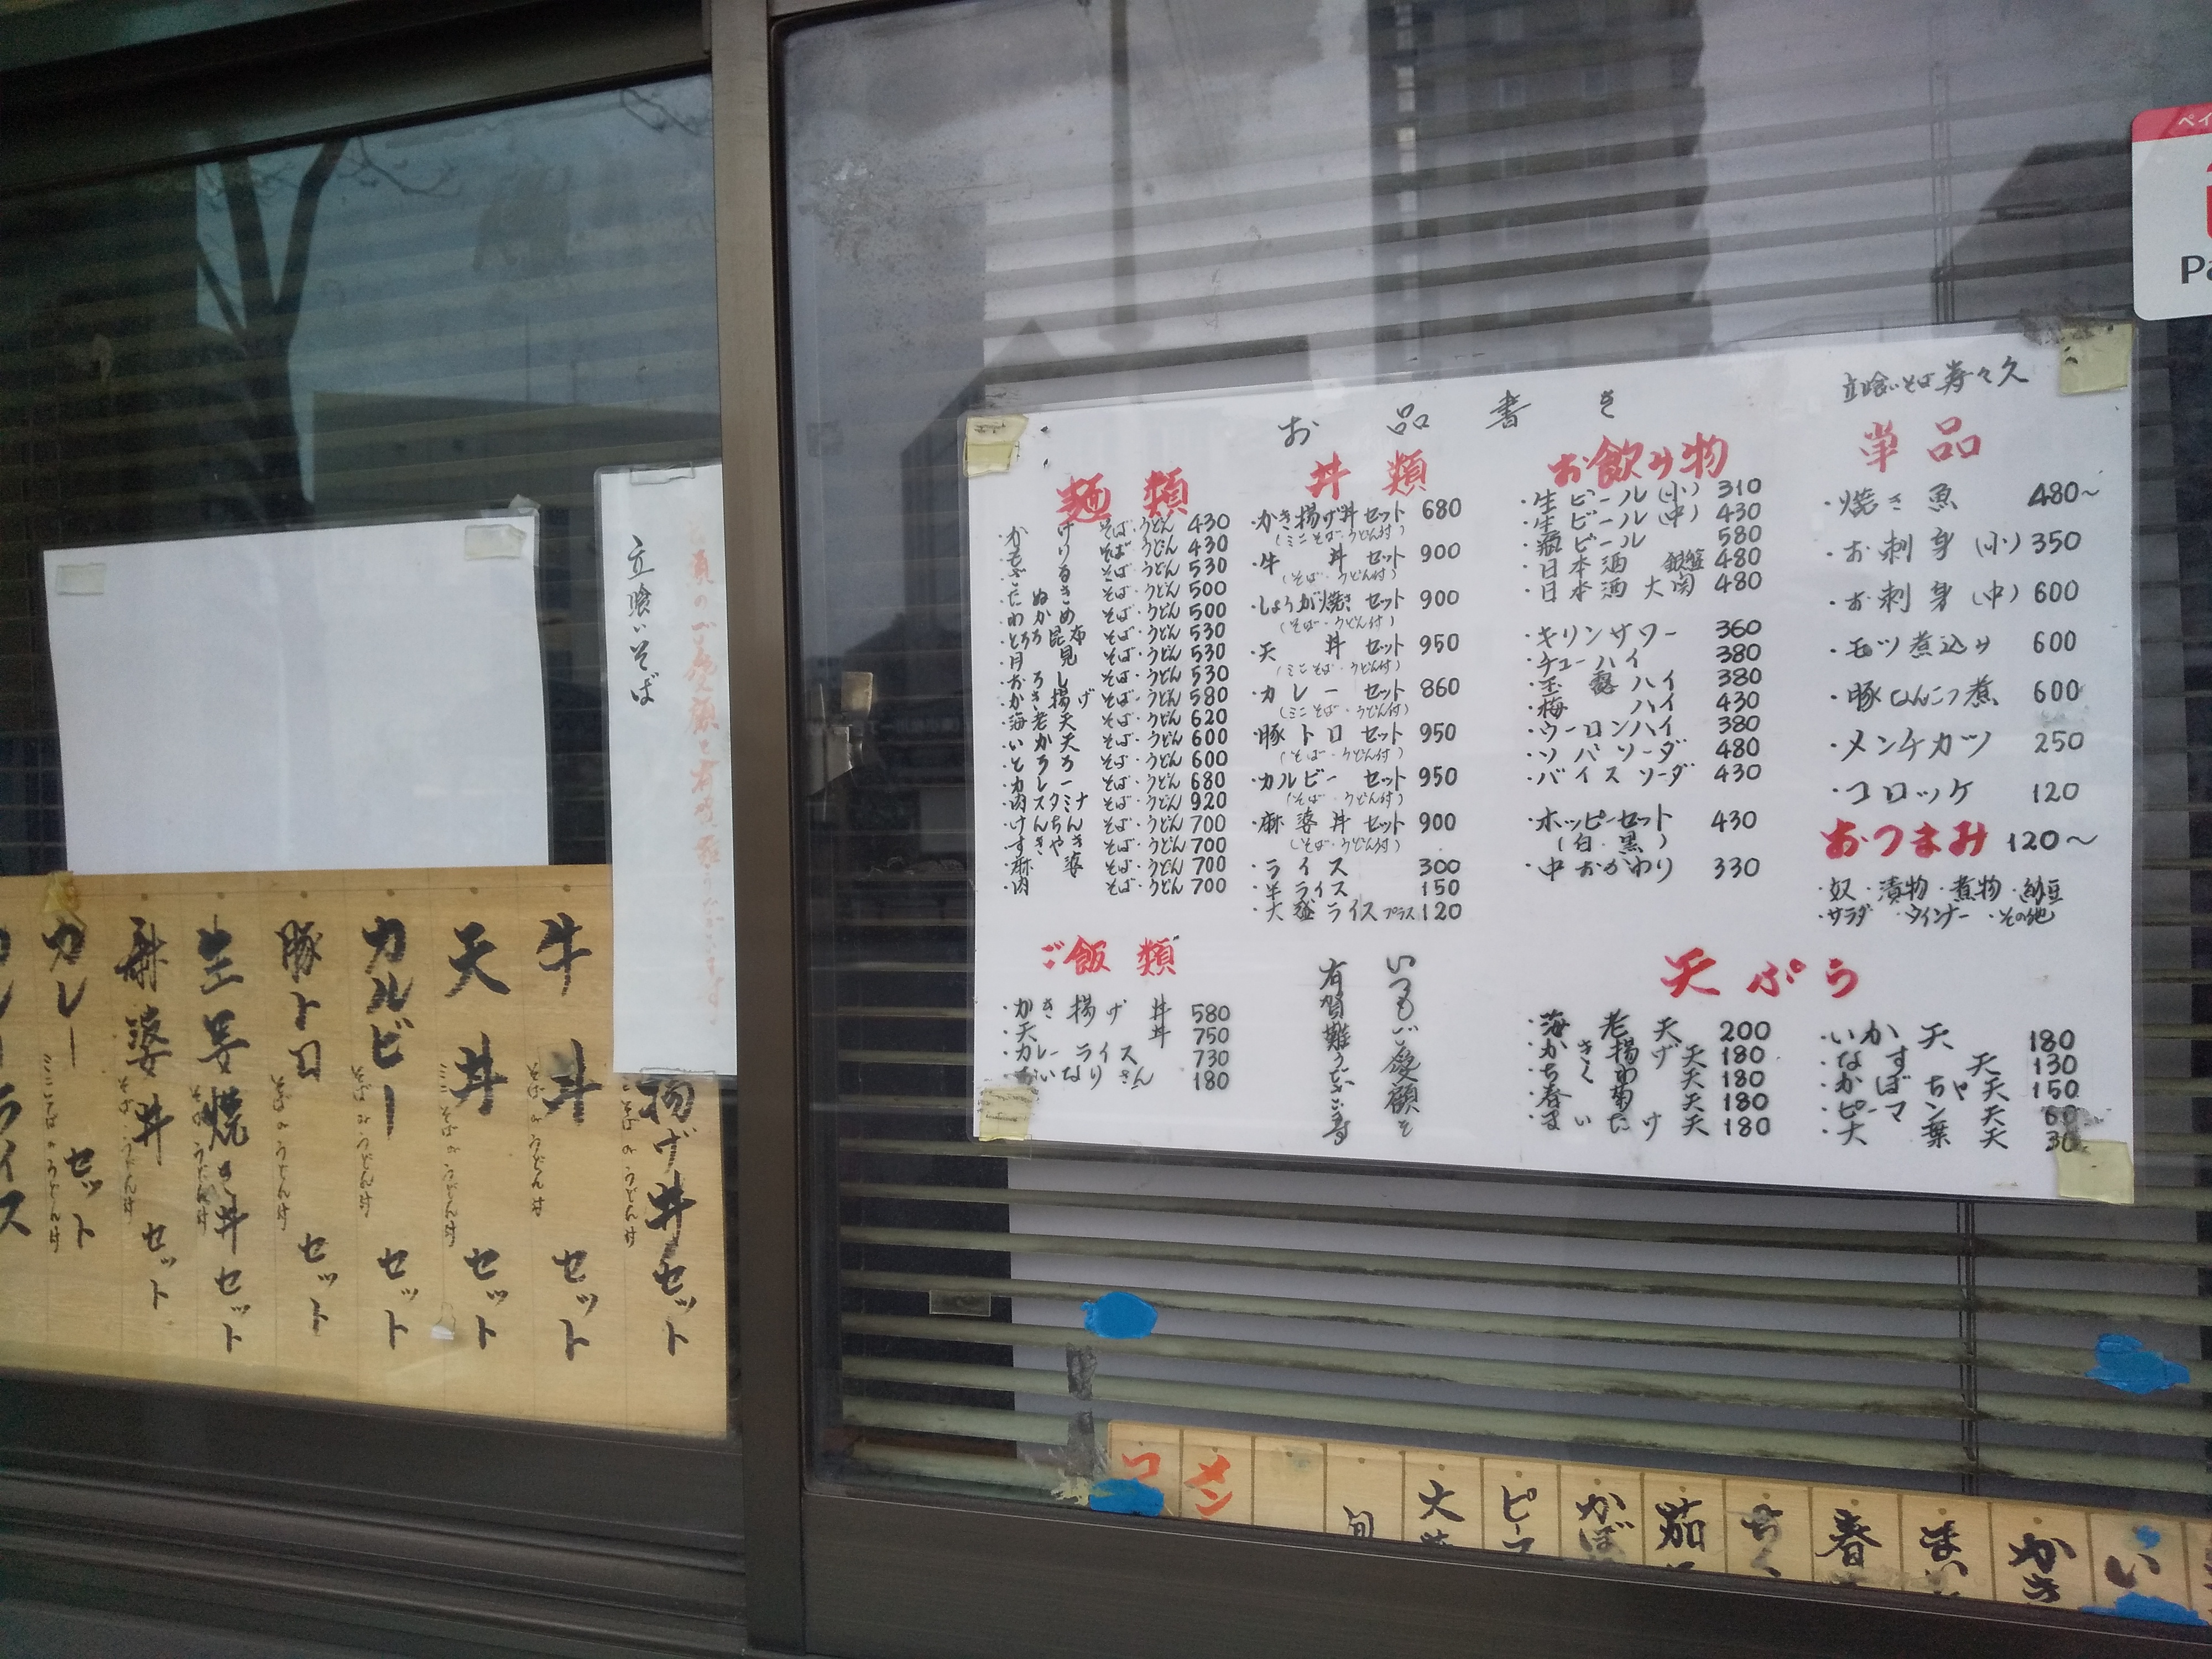 立喰いそば 寿々久
お品書き
麺類
・かけ そば・うどん 430
・もり そば・うどん 430
・ざる そば・うどん 530
・たぬき そば・うどん 500
・わかめ そば・うどん 500
・とろろ昆布 そば・うどん 530
・月見 そば・うどん 530
・おろし そば・うどん 530
・かき揚げ そば・うどん 580
・海老天 そば・うどん 620
・いか天 そば・うどん 600
・とろろ そば・うどん 600
・カレー そば・うどん 680
・肉スタミナ そば・うどん 920
・けんちん そば・うどん 700
・すきやき そば・うどん 700
・麻婆 そば・うどん 700
・肉 そば・うどん 700
丼類
・かき揚げ丼セット 680
(ミニそば・うどん付)
・牛丼セット 900
(そば・うどん付)
・しょうが焼きセット 900
(そば・うどん付)
・天丼セット 950
(ミニそば・うどん付)
・カレーセット 860
(ミニそば・うどん付)
・豚トロセット 950
(そば・うどん付)
・カルビーセット 950
(そば・うどん付)
・麻婆丼セット 900
(そば・うどん付)
・ライス 300
・半ライス 150
・大盛ライス プラス 120
お飲み物
・生ビール(小) 310
・生ビール(中) 430
・瓶ビール 580
・日本酒 銀盤 480
・日本酒 大関 480
・キリンサワー 360
・チューハイ 380
・玉露ハイ 380
・梅ハイ 430
・ウーロンハイ 380
・ソバソーダ 480
・バイスソーダ 430
・ホッピーセット 430
(白・黒)
・中おかわり 330
単品
・焼き魚 480~
・お刺身(小) 350
・お刺身(中) 600
・モツ煮込み 600
・豚なんこつ煮 600
・メンチカツ 250
・コロッケ 120
おつまみ 120~
・奴・漬物・煮物・納豆
・サラダ・ウインナー・その他
ご飯類
・かき揚げ丼 580
・天丼 750
・カレーライス 730
・おいなりさん 180
いつもご愛顧を
有賀難うございます
天ぷら
・海老天 200
・かき揚げ天 180
・ちくわ天 180
・春菊天 180
・まいたけ天 180
・いか天 180
・なす天 130
・かぼちゃ天 150
・ピーマン天 60
・大葉天 30
立喰いそば
揚げ丼セット
そばorうどん付
牛丼セット
そばorうどん付
天丼セット
ミニそばorうどん付
カルビーセット
そばorうどん付
豚トロセット
そばorうどん付
生姜焼き丼セット
そばorうどん付
麻婆丼セット
そばorうどん付
カレーセット
ミニそばorうどん付
ライス
コ
メン
旬
大
ピー
かぼ
茄
ちく
春
まい
かき
い
ペイ
Pa